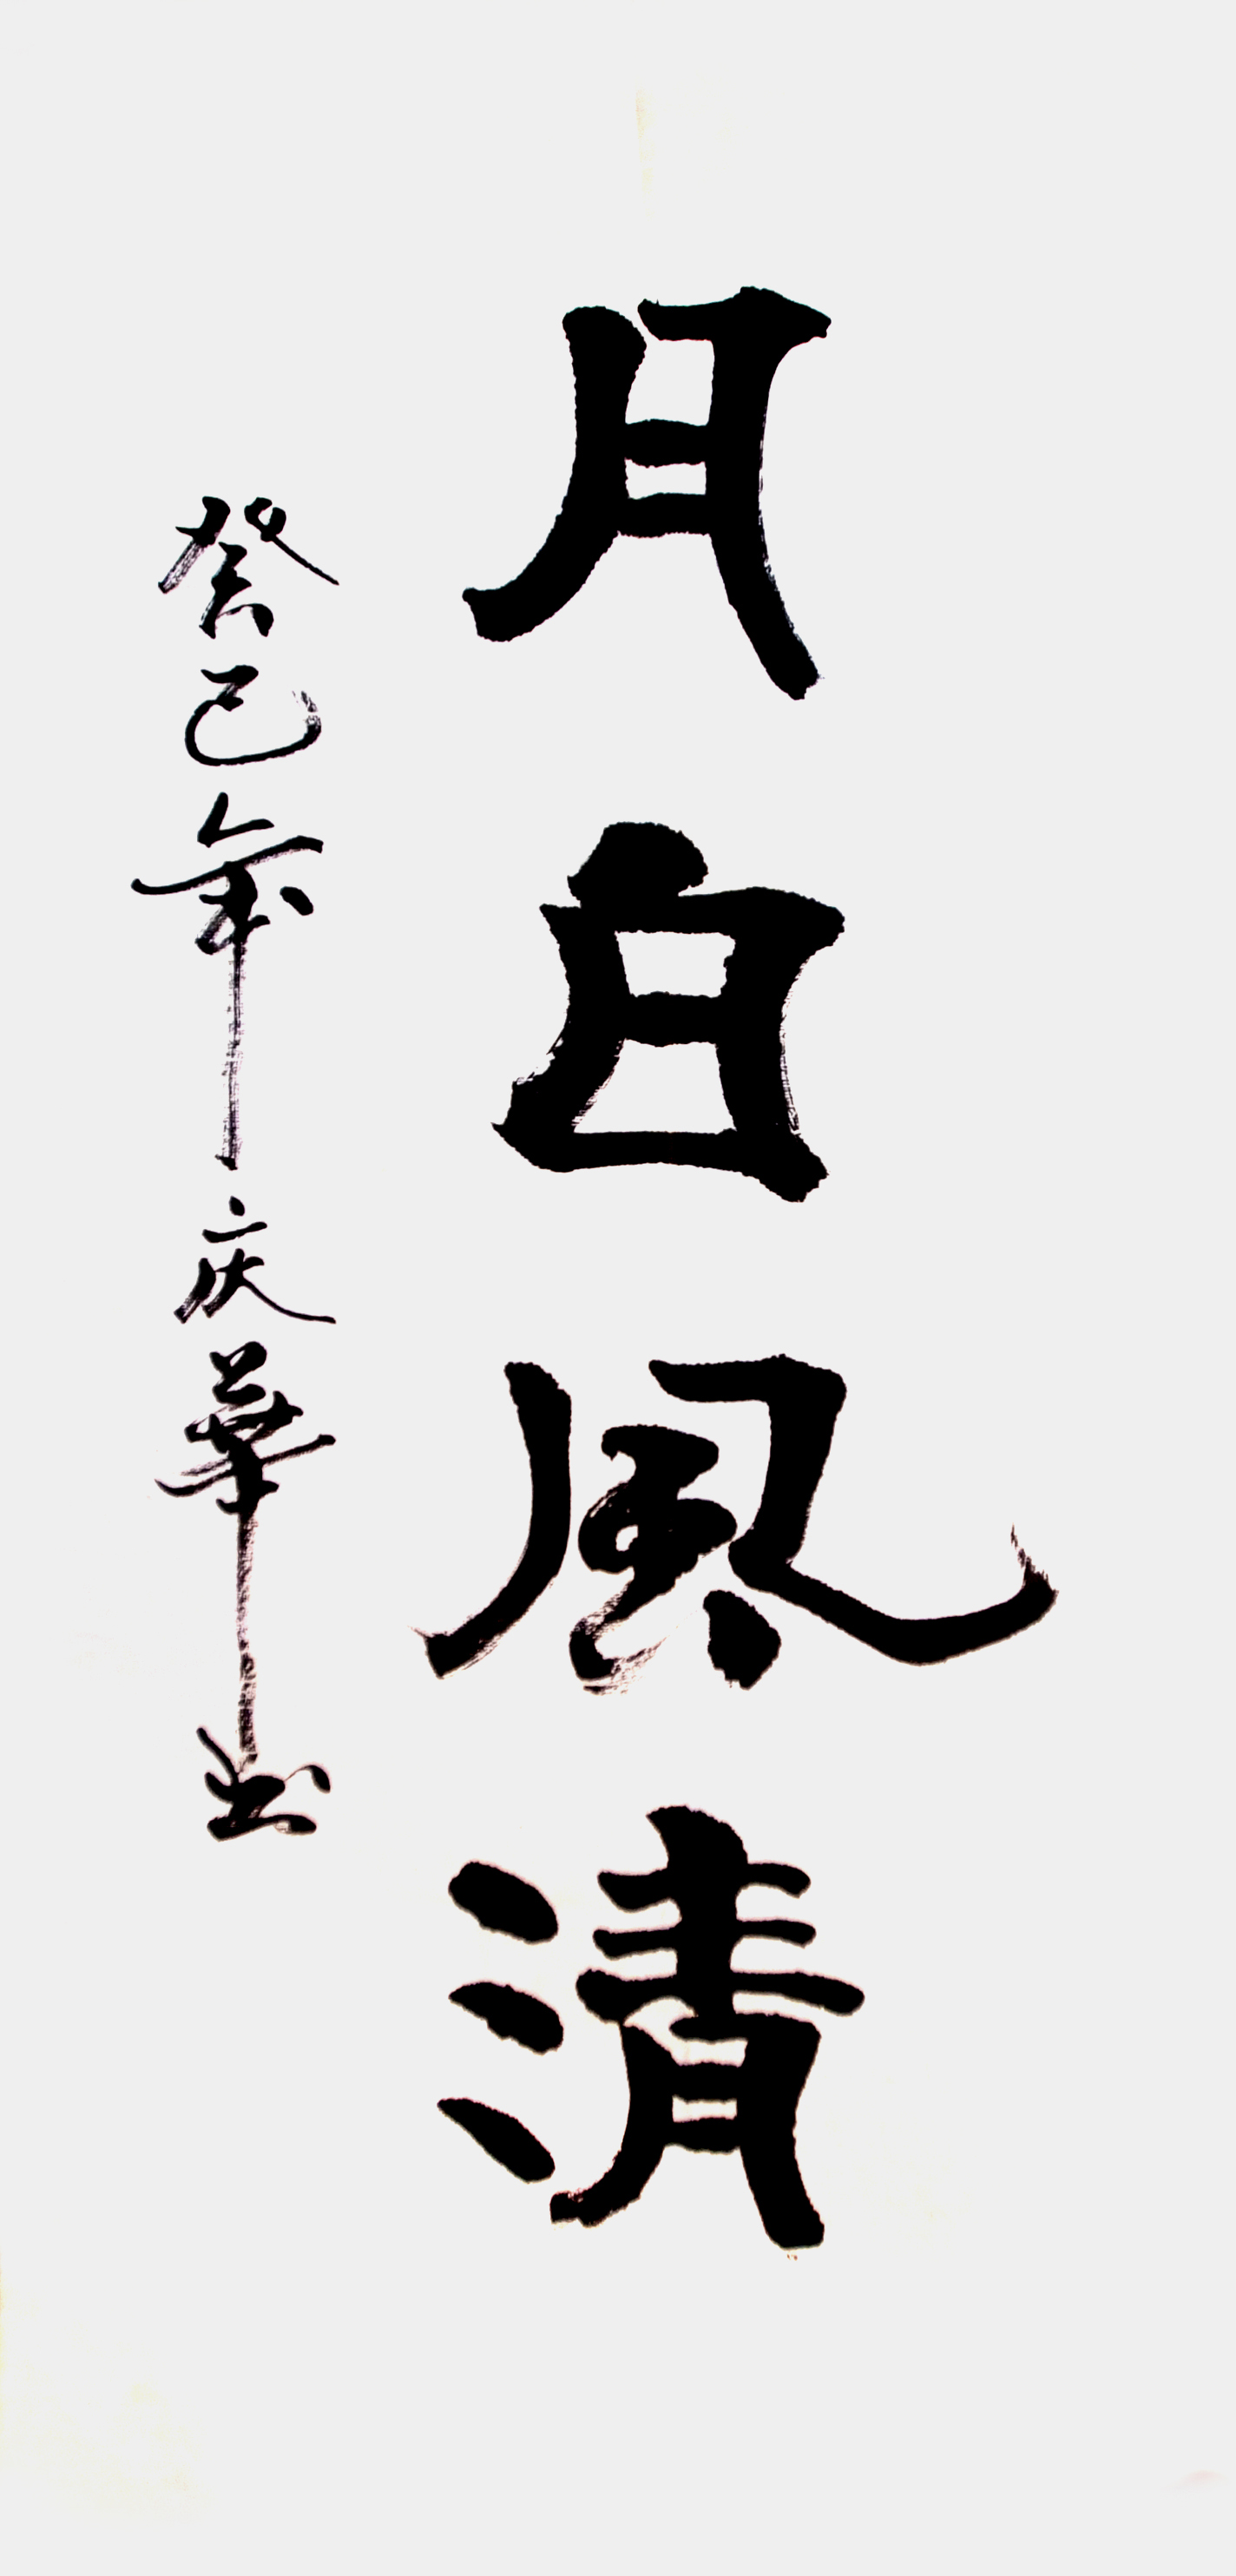 月白风清
癸巳年庆華书